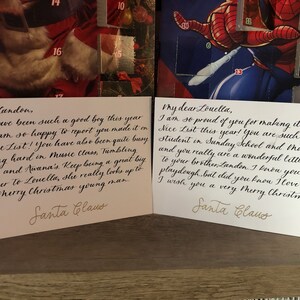 16
14
15
13
Landon,
been such a good boy this year
am so happy to report you made it on
List! You have also been quite busy
ng hard in Music Class, Tumbling,
and Awana's. Keep being a great big
to Louella, she really looks up to
Merry Christmas young man.
Santa Claus
My dear Louella,
I am so proud of you for making it
Nice List this year! You are such
student in Sunday School and M
and you really are a wonderful little
to your brother Landon. I know you
playdough, but did you know I love
I wish you a very Merry Christm
Santa Claus